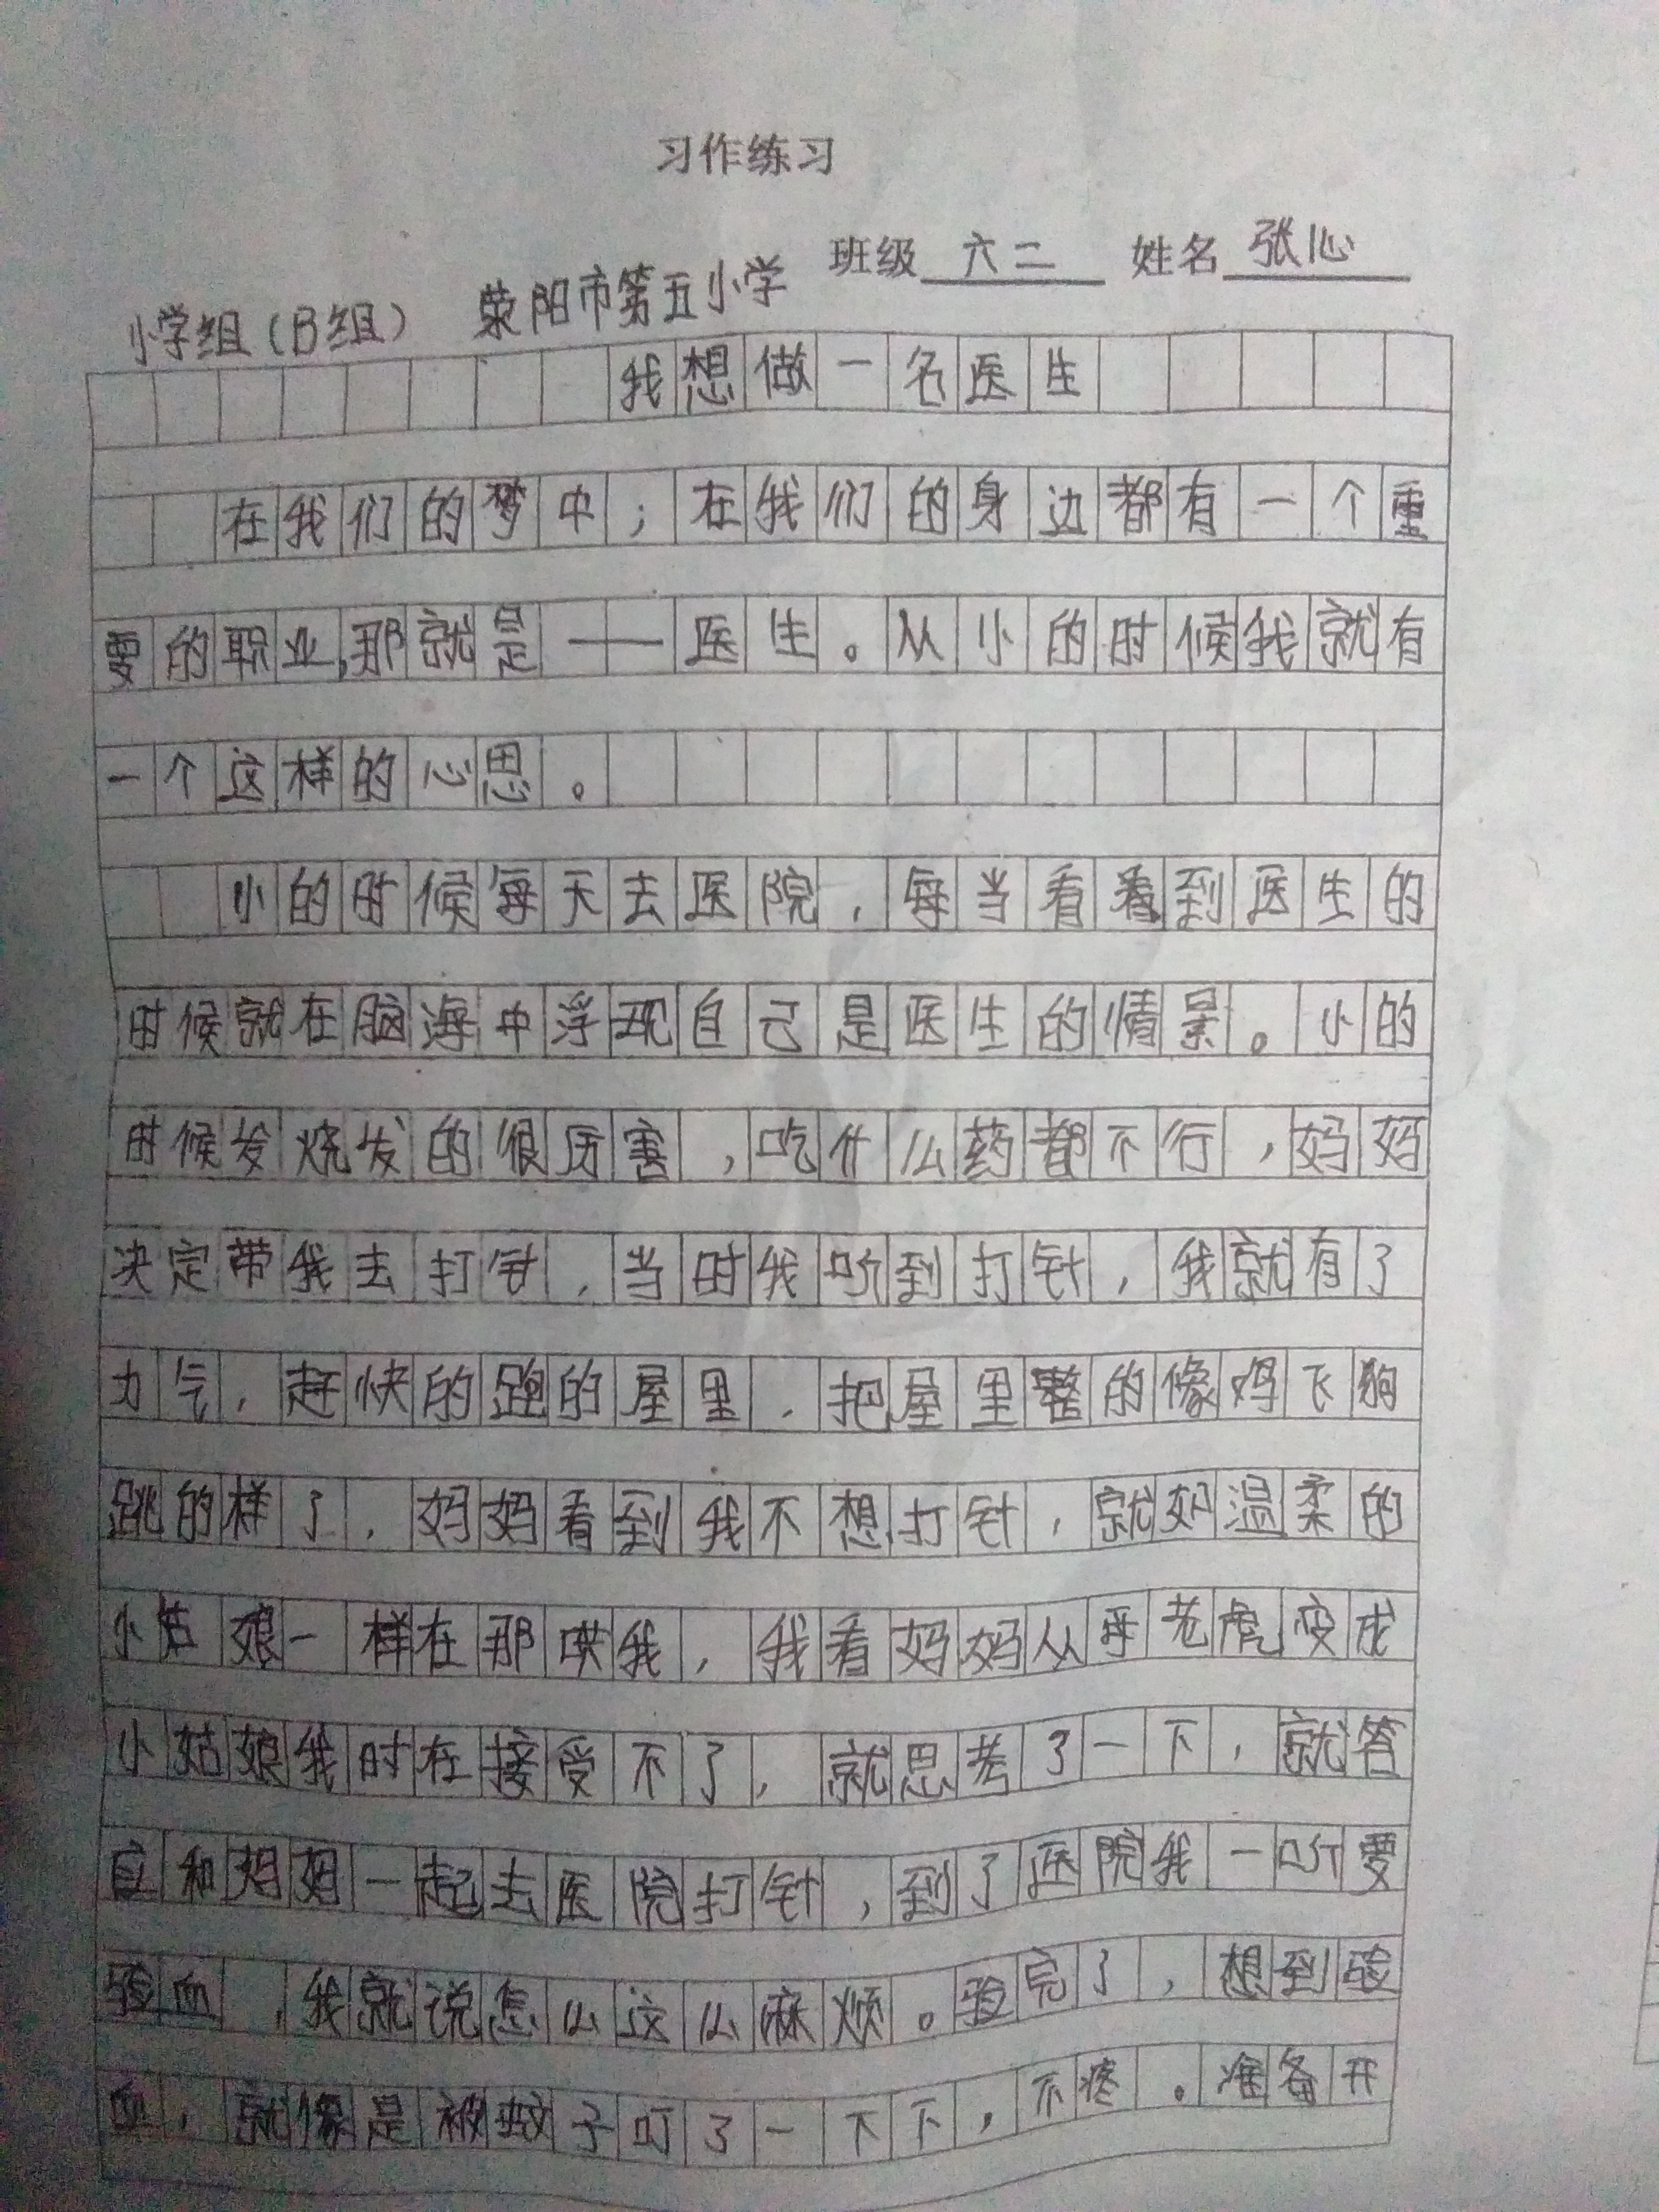 习作练习
班级 六二 姓名 张心
小学组(B组) 荥阳市第五小学
我想做一名医生
在我们的梦中;在我们的身边都有一个重
要的职业,那就是——医生。从小的时候我就有
一个这样的心思。
小的时候每天去医院,每当看看到医生的
时候就在脑海中浮现自己是医生的情景。小的
时候发烧发的很厉害,吃什么药都不行,妈妈
决定带我去打针,当时我听到打针,我就有了
力气,赶快的跑的屋里,把屋里整的像鸡飞狗
跳的样了,妈妈看到我不想打针,就如温柔的
小姑娘一样在那哄我,我看妈妈从母老虎变成
小姑娘我时在接受不了,就思考了一下,就答
应和妈妈一起去医院打针,到了医院我一听要
验血,我就说怎么这么麻烦。验完了,想到验
血,就像是被蚊子叮了一下下,不疼。准备开